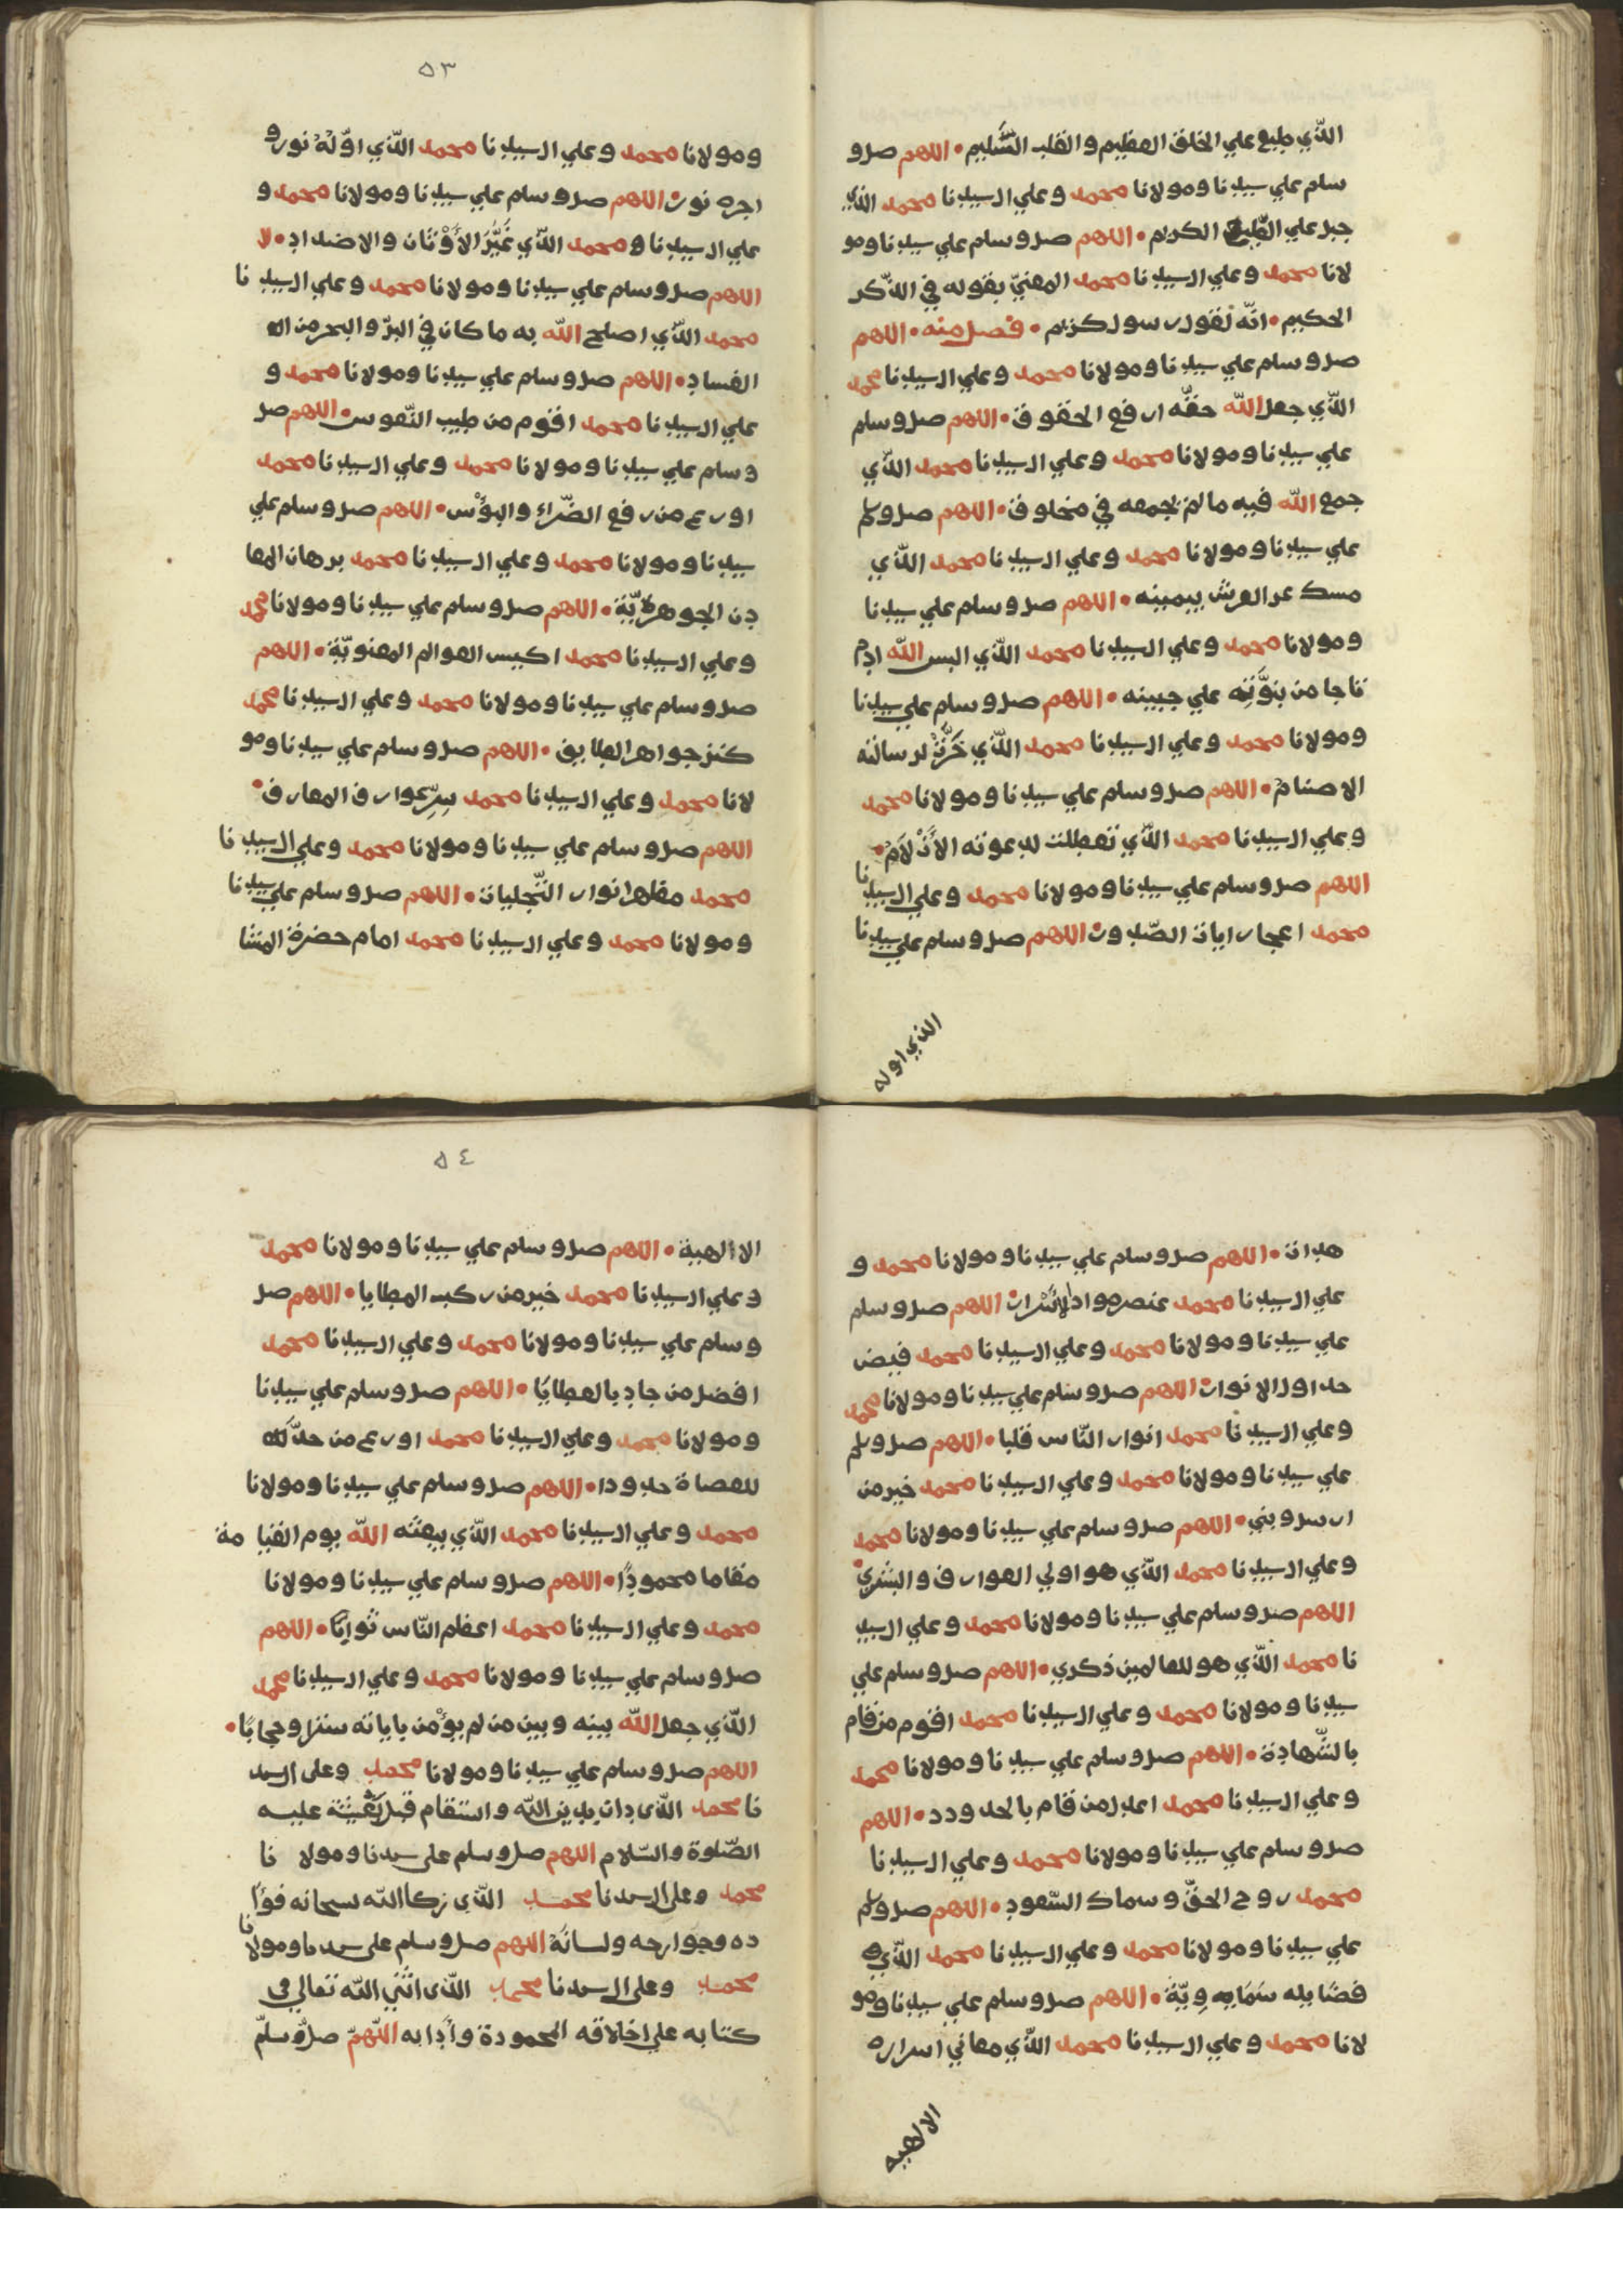 الذي طبع علي الخلق العظيم والقلب السّليم • اللهم صل و
سلم علي سيدنا ومولانا محمد وعلي ال سيدنا محمد الذي
جبل علي الطبع الكرام • اللهم صل وسلم علي سيدنا ومو
لانا محمد وعلي ال سيدنا محمد المعنيّ بقوله في الذّكر
الحكيم • انّه لقول رسول كريم • فصل منه • اللهم
صل وسلم علي سيدنا ومولانا محمد وعلي ال سيدنا محمد
الذّي جعل الله حقّه ارفع الحقوق • اللهم صل وسلم
علي سيدنا ومولانا محمد وعلي ال سيدنا محمد الذّي
جمع الله فيه مالم يجمعه في مخلوق • اللهم صل وسلم
علي سيدنا ومولانا محمد وعلي ال سيدنا محمد الذّي
مسك عر العرش بيمينه • اللهم صل وسلم علي سيدنا
ومولانا محمد وعلي ال سيدنا محمد الذّي البس الله ادم
تاجا من بنوّته علي جبينه • اللهم صل وسلم علي سيدنا
ومولانا محمد وعلي ال سيدنا محمد الذّي خرّت لرسالته
الاصنام • اللهم صل وسلم علي سيدنا ومولانا محمد
وعلي ال سيدنا محمد الذّي تعطلت لدعوته الأزلام •
اللهم صل وسلم علي سيدنا ومولانا محمد وعلي ال سيدنا
محمد اعجار ايات الصّدور • اللهم صل وسلم علي سيدنا
الذي اوله
٥٣
ومولانا محمد وعلي ال سيدنا محمد الذّي اوّله نور و
اخره نور • اللهم صل وسلم علي سيدنا ومولانا محمد و
علي ال سيدنا و محمد الذّي الأوثان والاضداد • لا
اللهم صل وسلم علي سيدنا ومولانا محمد وعلي ال سيدنا
محمد الذّي اصلح الله به ماكان في البرّ والبحر من اله
الفساد • اللهم صل وسلم علي سيدنا ومولانا محمد و
علي ال سيدنا محمد اقوم من طيب النّفوس • اللهم صل
وسلم علي سيدنا ومولانا محمد وعلي ال سيدنا محمد
اورع من رفع الضّراء والبؤس • اللهم صل وسلم علي
سيدنا ومولانا محمد وعلي ال سيدنا محمد برهان المعا
دن الجوهريّة • اللهم صل وسلم علي سيدنا ومولانا محمد
وعلي ال سيدنا محمد اكيس العوالم المعنويّة • اللهم
صل وسلم علي سيدنا ومولانا محمد وعلي ال سيدنا محمد
كنز جواهر الطايف • اللهم صل وسلم علي سيدنا ومو
لانا محمد وعلي ال سيدنا محمد سرّ عوارف المعارف •
اللهم صل وسلم علي سيدنا ومولانا محمد وعلي ال سيدنا
محمد مظهر انوار التّجليات • اللهم صل وسلم علي سيدنا
ومولانا محمد وعلي ال سيدنا محمد امام حضرة المشا
هدات • اللهم صل وسلم علي سيدنا ومولانا محمد و
علي ال سيدنا محمد عنصر مواد الأسرار • اللهم صل وسلم
علي سيدنا ومولانا محمد وعلي ال سيدنا محمد فيض
جداول الانوار • اللهم صل وسلم علي سيدنا ومولانا محمد
وعلي ال سيدنا محمد انوار النّاس قلبا • اللهم صل وسلم
علي سيدنا ومولانا محمد وعلي ال سيدنا محمد خير من
ارسل ونبي • اللهم صل وسلم علي سيدنا ومولانا محمد
وعلي ال سيدنا محمد الذّي هو اولي العوارف والبشري •
اللهم صل وسلم علي سيدنا ومولانا محمد وعلي ال سيد
نا محمد الذّي هو للعالمين ذكري • اللهم صل وسلم علي
سيدنا ومولانا محمد وعلي ال سيدنا محمد اقوم من قام
بالشّهادة • اللهم صل وسلم علي سيدنا ومولانا محمد
وعلي ال سيدنا محمد اعدل من قام بالحدودد • اللهم
صل وسلم علي سيدنا ومولانا محمد وعلي ال سيدنا
محمد روح الحقّ وسماك السّعود • اللهم صل وسلم
علي سيدنا ومولانا محمد وعلي ال سيدنا محمد الذّي
فضايله سماويّة • اللهم صل وسلم علي سيدنا ومو
لانا محمد وعلي ال سيدنا محمد الذّي معاني اسراره
الالهيه
٥٤
الاالهية • اللهم صل وسلم علي سيدنا ومولانا محمد
وعلي ال سيدنا محمد خير من ركب المطايا • اللهم صل
وسلم علي سيدنا ومولانا محمد وعلي ال سيدنا محمد
افضل من جاد بالعطايا • اللهم صل وسلم علي سيدنا
ومولانا محمد وعلي ال سيدنا محمد اورع من حدّ لله
للعصاة حدودا • اللهم صل وسلم علي سيدنا ومولانا
محمد وعلي ال سيدنا محمد الذّي يبعثه الله يوم القيامة
مقاما محمودًا • اللهم صل وسلم علي سيدنا ومولانا
محمد وعلي ال سيدنا محمد اعظم النّاس ثوابًا • اللهم
صل وسلم علي سيدنا ومولانا محمد وعلي ال سيدنا محمد
الذّي جعل الله بينه وبين من لم يؤمن باياته ستزا وحجابًا •
اللهم صل وسلم علي سيدنا ومولانا محمد وعلى ال سيد
نا محمد الذّى دان بدين الله واستقام قبل بعثته عليه
الصّلوة والسّلام اللهم صل وسلم على سيدنا ومولا نا
محمد وعلى ال سيدنا محمد الذّى زكا الله سبحانه فوأ
ده وجوارحه ولسانه اللهم صل وسلم على سيدنا ومولانا
محمد وعلى ال سيدنا محمد الذّى اثني الله تعالي فى
كتابه علي اخلاقه المحمودة وأدابه اللّهمّ صلّ وسلّم